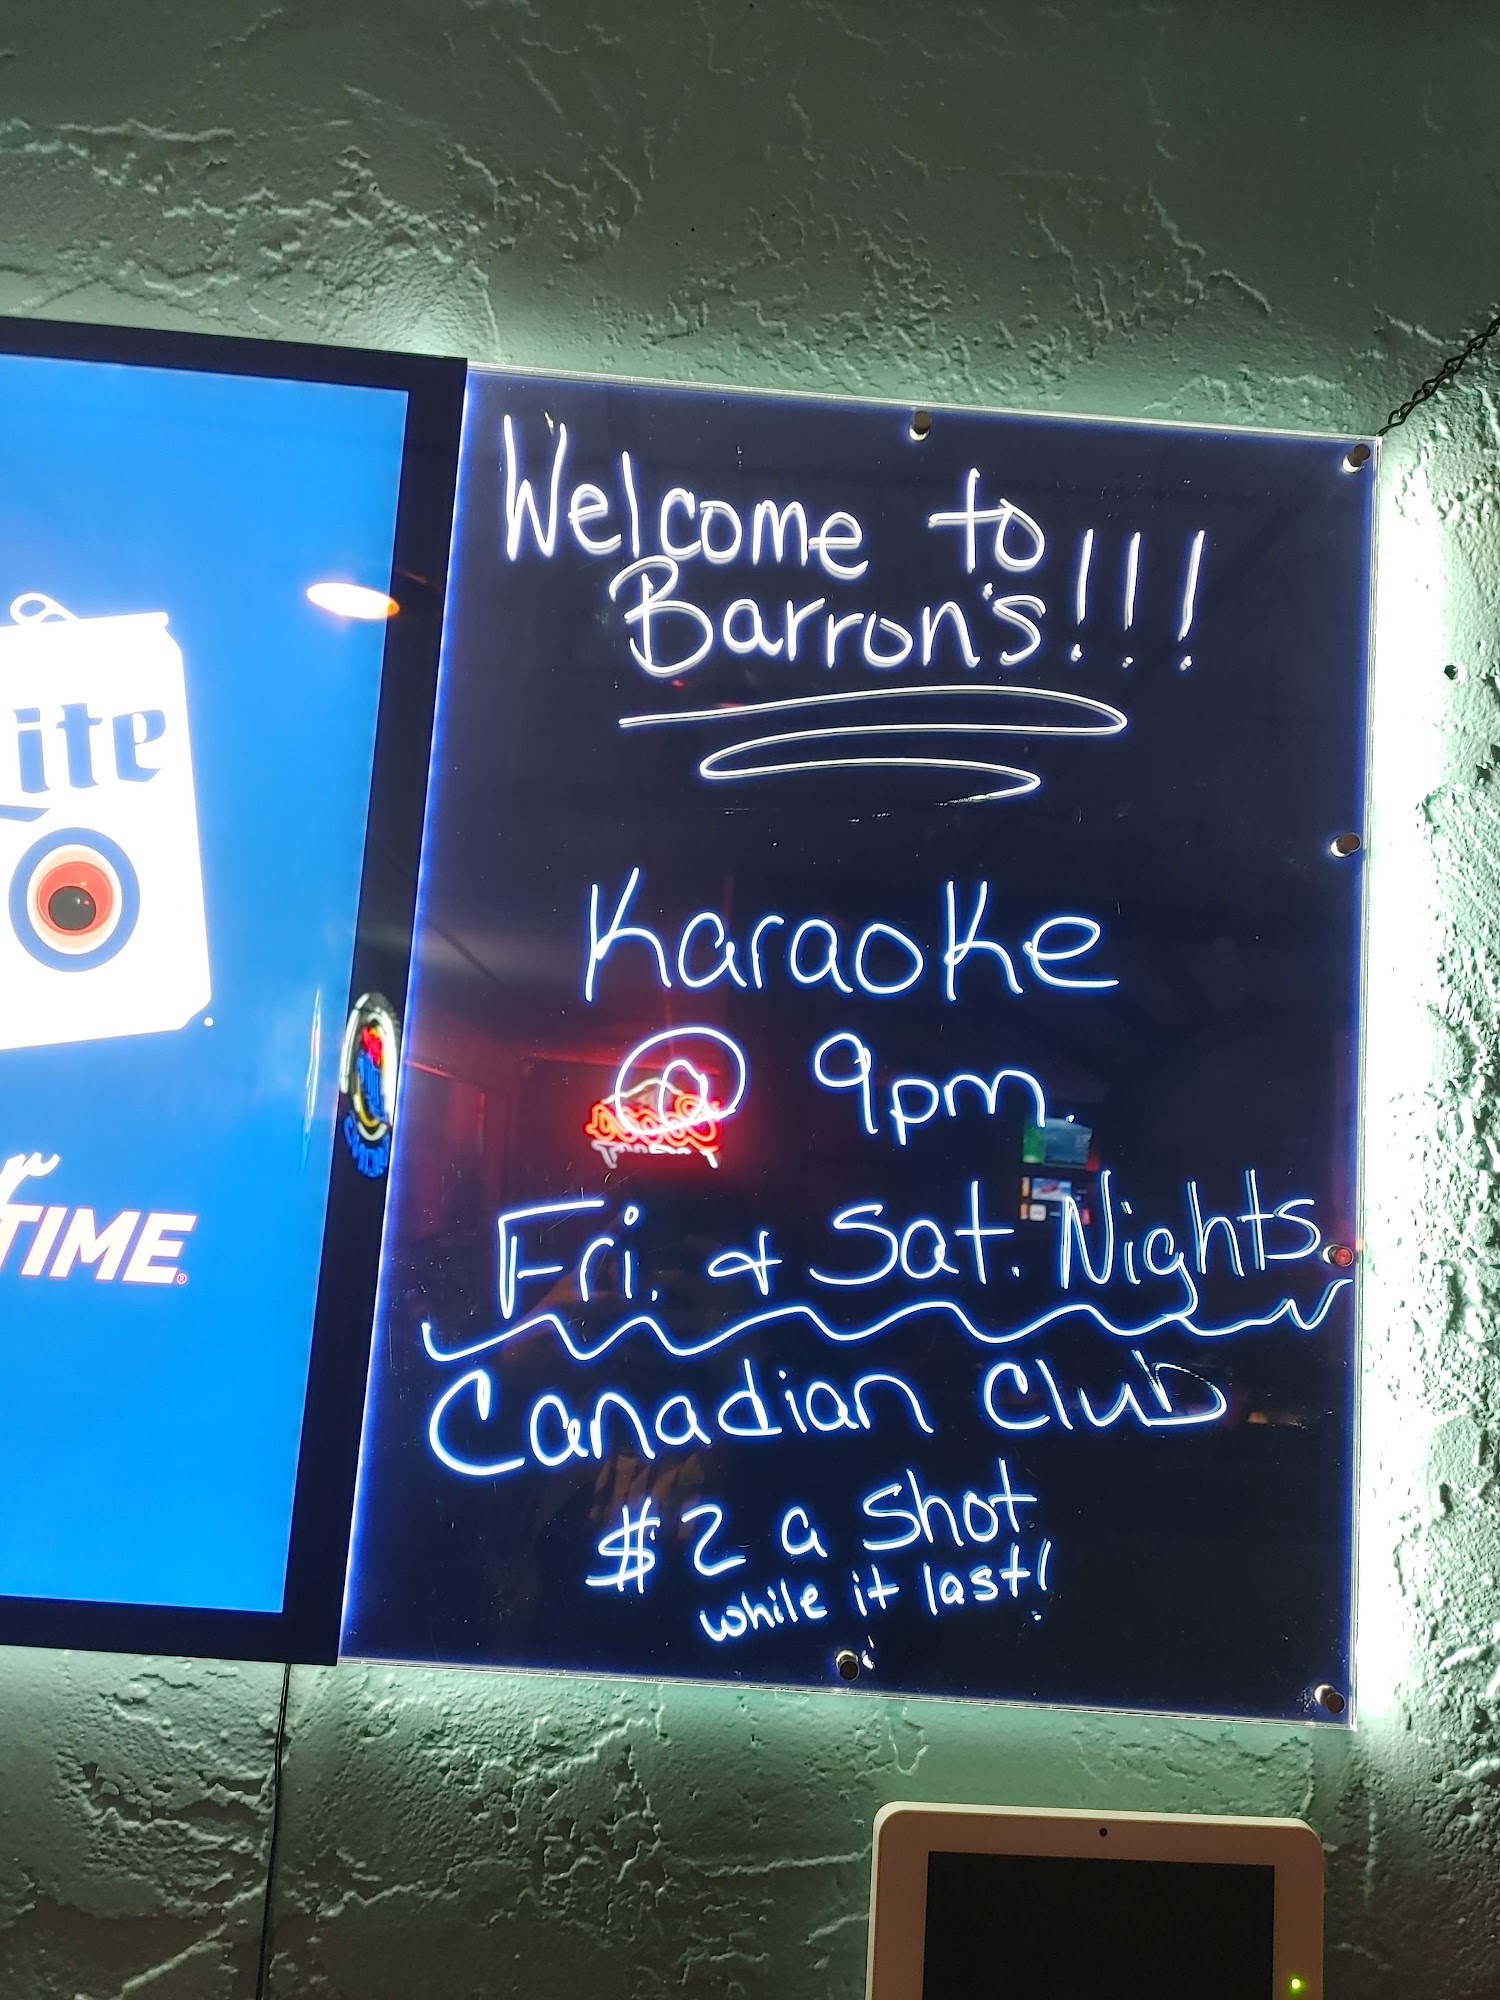 Welcome to
Barron's!!!
Karaoke
@ 9pm
Fri. & Sat. Nights
Canadian Club
$2 a shot
while it last!
Lite
TIME